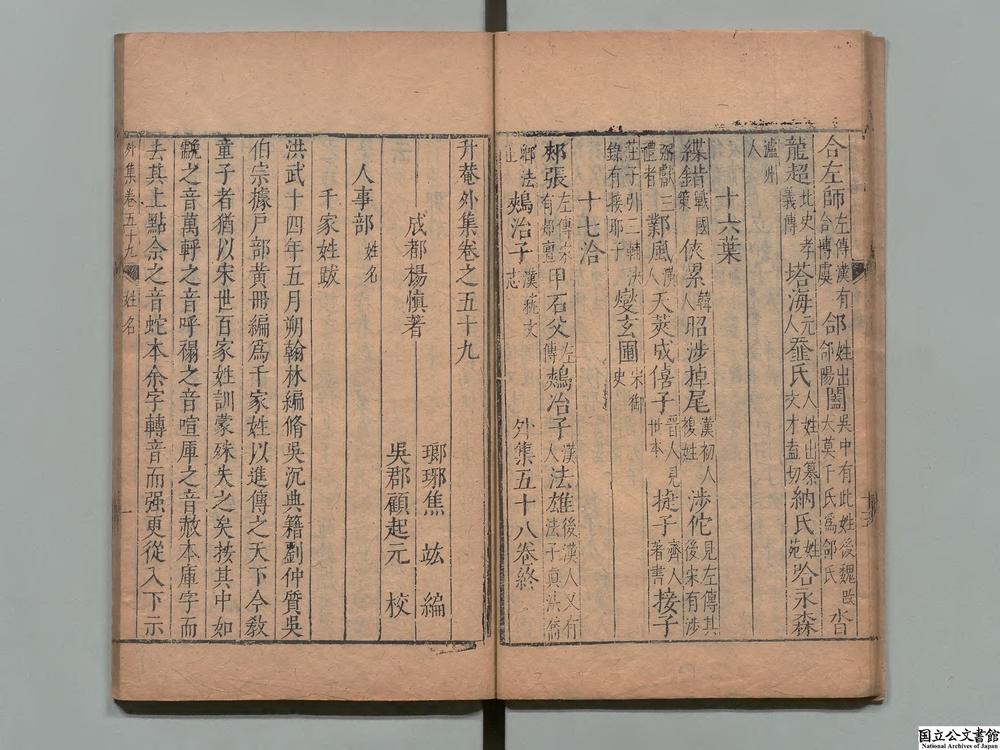 合左師左傳漢有合傅虞郃姓出郃陽闔吳中有此姓後魏改大莫干氏爲郃氏沓
龍超北史孝義傳塔海元人盍氏人姓出纂文才盍切納氏姓苑哈永森
瀘州人
十六葉
緤錯戰國策俠累韓人昭涉掉尾漢初人複姓涉佗見左傳其後宋有涉
弼獻三禮者鄴風漢人天莢成僖子晉人見世本捷子齊人著書接子
莊子引二輒決錄有接耶子燮玄圃宋御史
十七洽
郟張左傳宋有郟亶甲石父左傳鴂冶子漢人法雄後漢人又有法子真法裔
鄉法正鴂治子漢藝文志外集五十八卷終
升菴外集卷之五十九
成都楊愼著瑯琊焦竑編
吳郡顧起元校
人事部姓名
千家姓跋
洪武十四年五月朔翰林編脩吳沉典籍劉仲質吳
伯宗據戶部黃冊編爲千家姓以進傳之天下今敎
童子者猶以宋世百家姓訓蒙殊失之矣按其中如
䚔之音萬軤之音呼禤之音喧厙之音赦本庫字而
去其上點佘之音蛇本余字轉音而强更從入下示
外集卷五十九姓名一
国立公文書館
National Archives of Japan